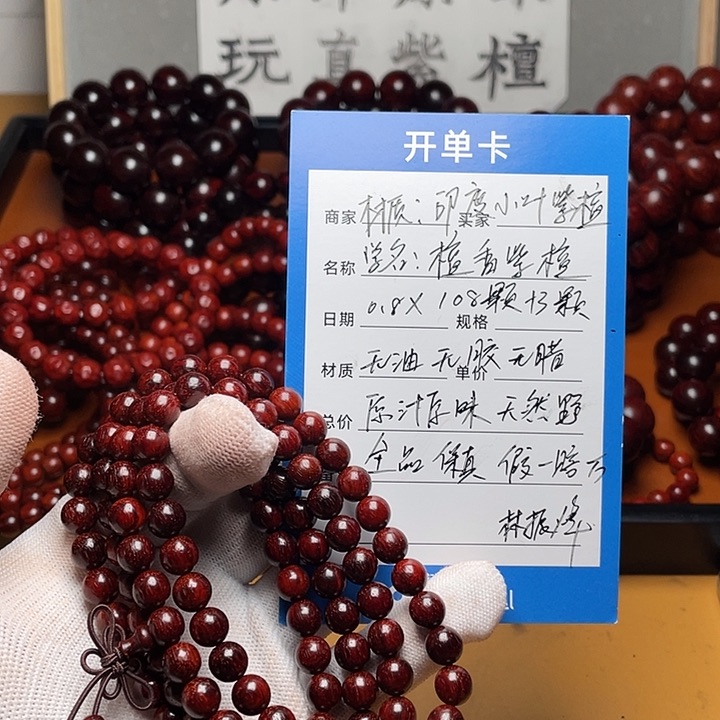 玩 直 紫 檀
开单卡
商家 材质：印度 买家 小叶紫檀
名称 学名：檀香紫檀
日期 0.8X108颗+3颗 规格
材质 无油 无胶 单价 无腊
总价 原汁原味 天然野
全品保真 假一赔万
林振烽